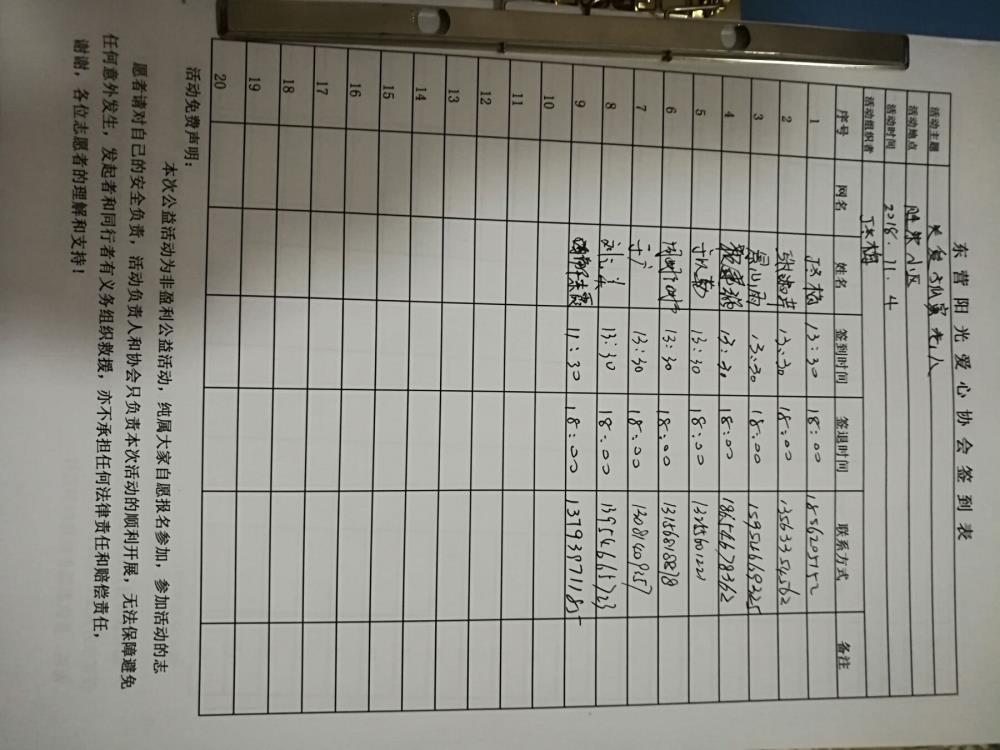 东营阳光爱心协会签到表
活动主题
活动地点 小区
活动时间 2018.11.4
活动组织者
序号 网名 姓名 签到时间 签退时间 联系方式 备注
1 13:30 18:00
2 13:30 18:00 13563354562
3 13:30 18:00 15954669325
4 13:30 18:00 18654678362
5 13:30 18:00
6 13:30 18:00 13156818878
7 13:30 18:00
8 13:30 18:00 13954665723
9 11:30 18:00 13793971185
10
11
12
13
14
15
16
17
18
19
20
活动免费声明：
本次公益活动为非盈利公益活动，纯属大家自愿报名参加，参加活动的志
愿者请对自己的安全负责，活动负责人和协会只负责本次活动的顺利开展，无法保障避免
任何意外发生，发起者和同行者有义务组织救援，亦不承担任何法律责任和赔偿责任，
谢谢，各位志愿者的理解和支持！